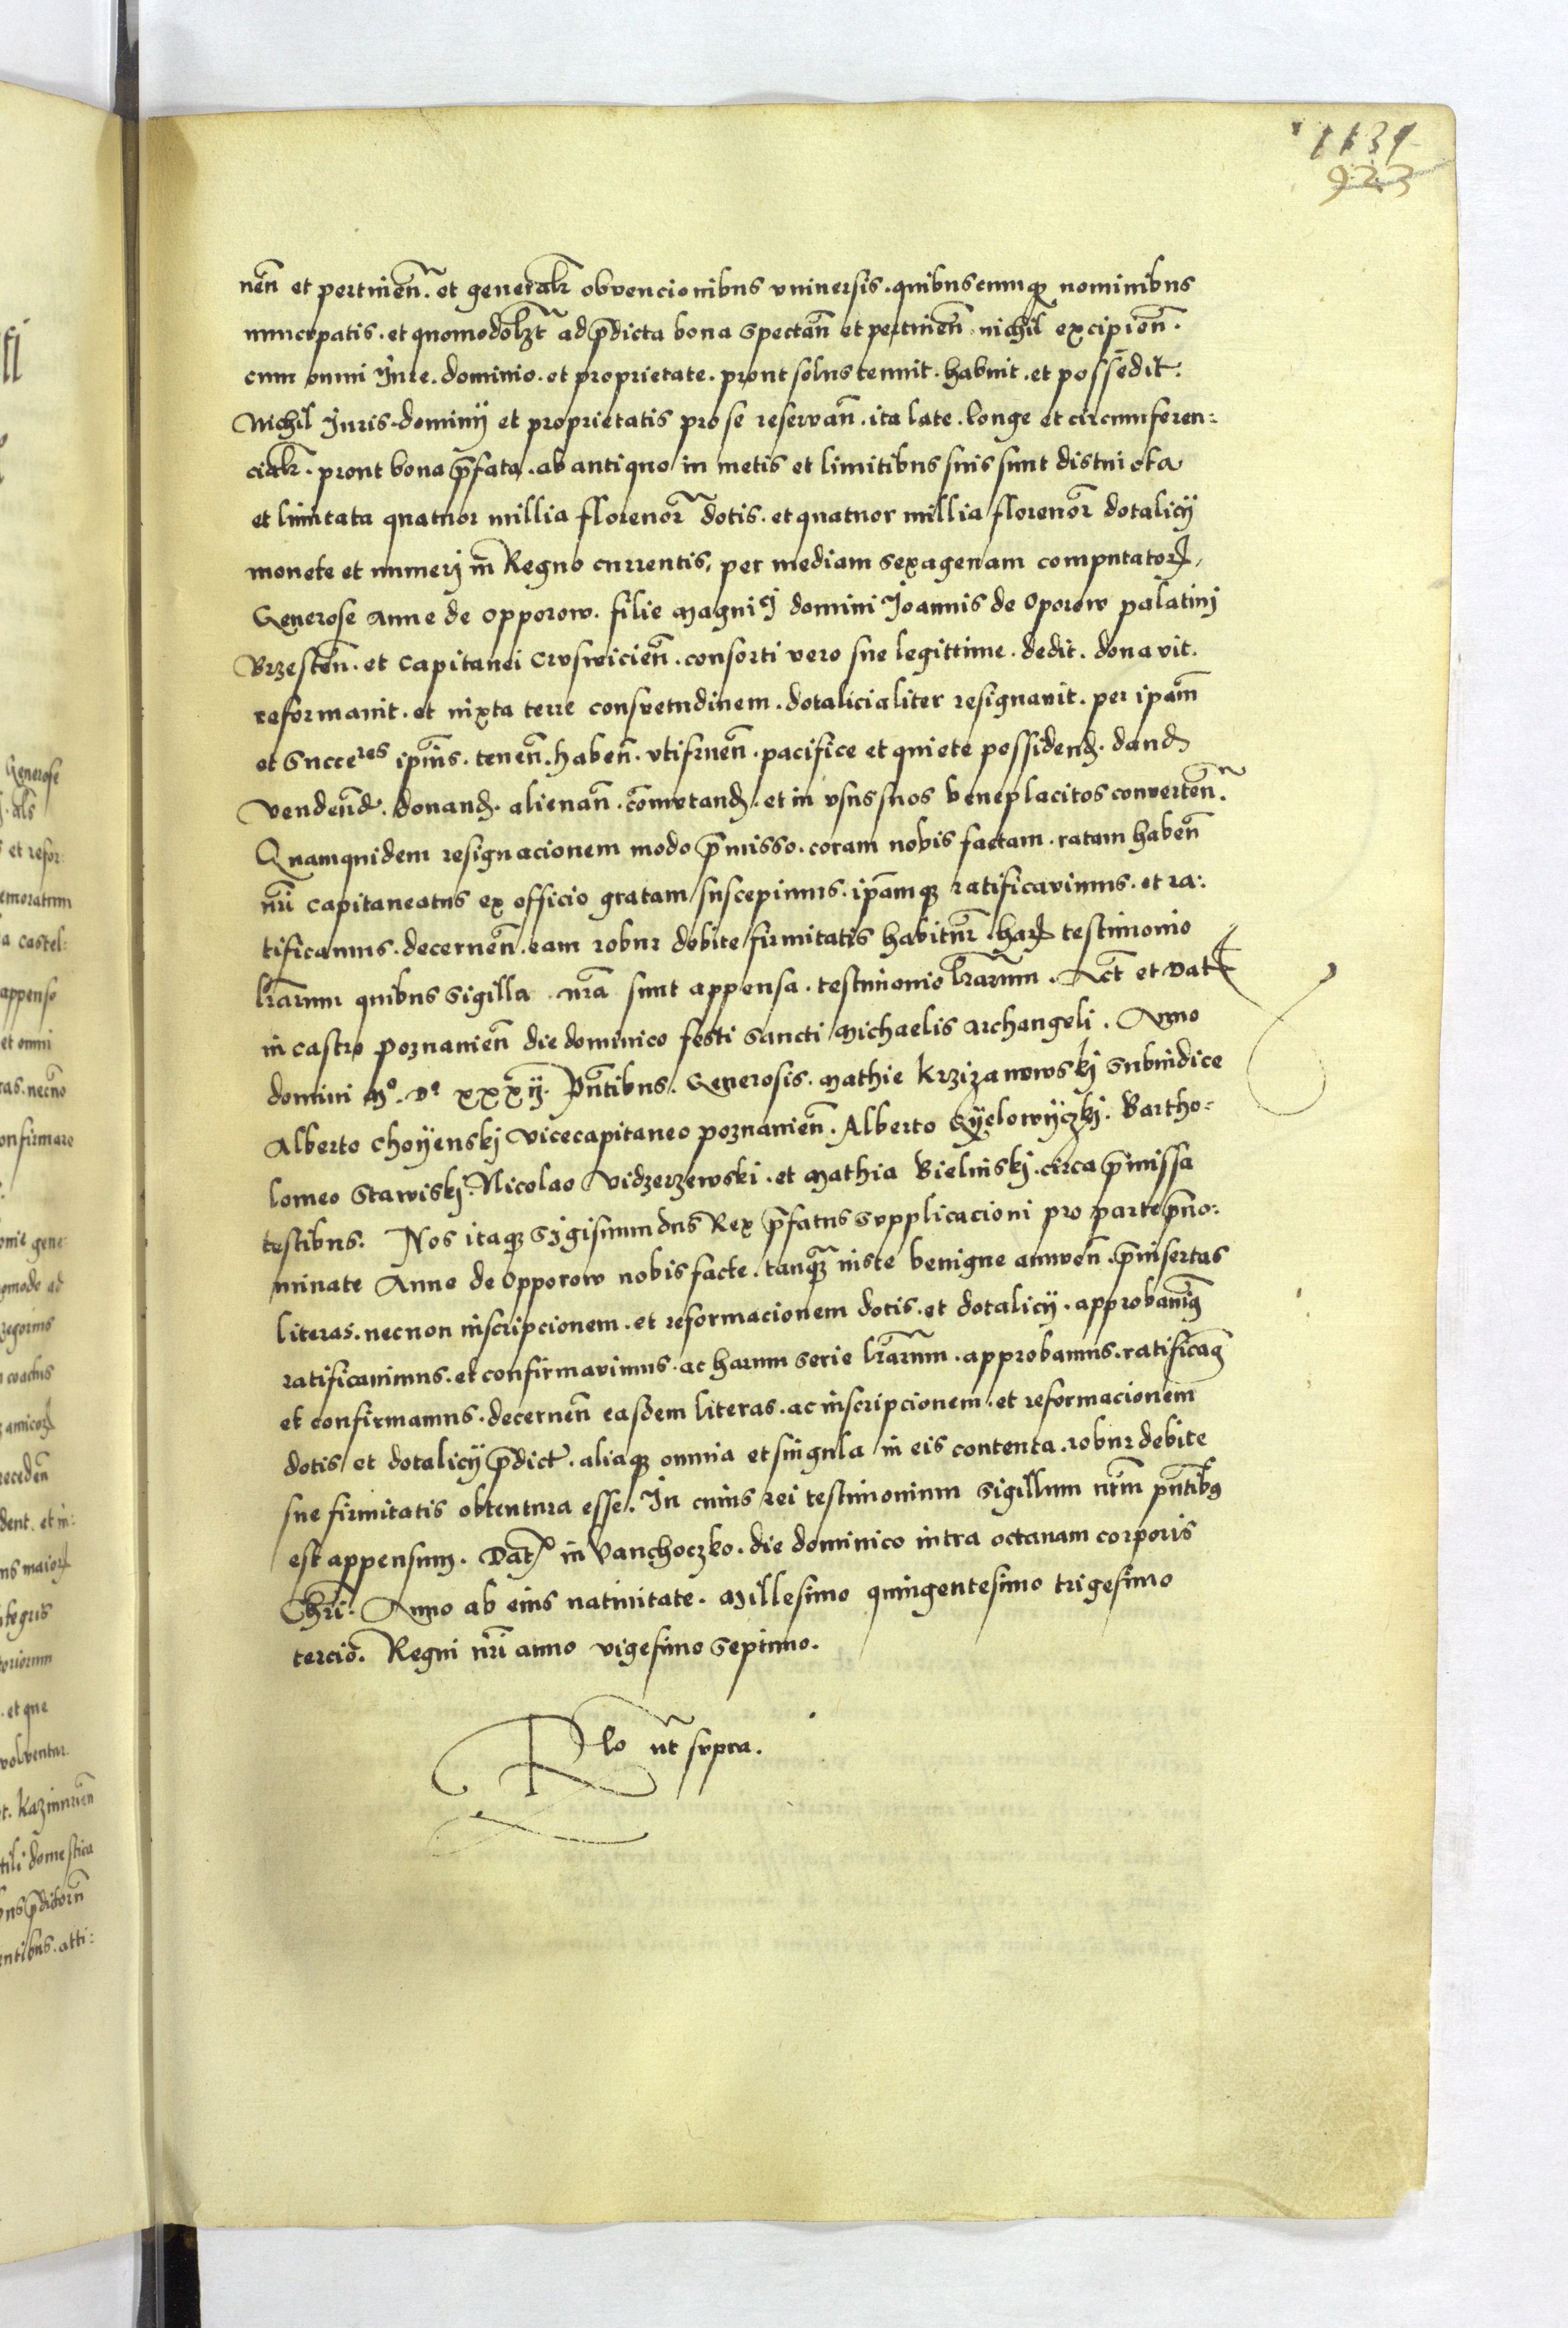 1131
923
nen̄ et pertinen̄. et generalr̄ obvencionibus vniuersis. quibuscumq̷ nominibus
nuncvpatis. et quomodolzt̄ ad p̄dicta bona spectan̄ et pertinen̄. nichil excipien̄.
cum omni Jure. dominio. et proprietate. prout solus tenuit. habuit. et possedit:
Nichil Juris. dominij et proprietatis pro se reservan̄. ita late. longe et circumferen:
cialr̄. prout bona p̄fata. ab antiquo in metis et limitibus suis sunt distincta
et limitata quatuor millia florenor̄ dotis. et quatuor millia florenor̄ dotalicij
monete et numeri in Regno currentis, per mediam sexagenam computatorꝝ,
Generose Anne de Opporow. filie Magnici domini Joannis de Oporow palatini
Brzesten̄. et Capitanei Crvswicien̄. consorti vero sue legittime. dedit. donavit.
reformauit. et iuxta terre consvetudinem. dotalicialiter resignauit. per ip̄am
et Succeres ip̄ius. tenen̄. haben̄. vtifruen̄. pacifice et quiete possidend̄. dand̄
vendend̄. donand̄. alienan̄. com̄vtand̄. et in vsus suos beneplacitos converten̄.
Quamquidem resignacionem modo p̄misso. coram nobis factam. ratam haben̄
nr̄i Capitaneatus ex officio gratam suscepimus. ip̄amq̷ ratificavimus. et ra:
tificamus. decernen̄. eam robur debite firmitatis habitur̄. harꝝ testimonio
lr̄arum quibus sigilla nr̄a sunt appensa. testimonio lr̄arum. Act̄ et Dat
in castro poznanien̄ die dominico festi Sancti Michaelis Archangeli. Anno
domini Mo. Do xxxij. Pn̄tibus. Generosis. Mathie Krzizanowskj Subiudice
Alberto Choyenskj vicecapitaneo poznanien̄. Alberto Gyelowyczkj. Bartho:
lomeo Stawiskj. Nicolao Vidzerzewski. et Mathia Bielinskj. circa p̄missa
testibus. Nos itaq̷ Sigismundus Rex p̄fatus svpplicacioni pro parte p̄no:
minate Anne de Opporow nobis facte. tanq̄ iuste benigne annuen̄. p̄insertas
literas. necnon inscripcionem. et reformacionem dotis. et dotalicij. approbauimꝰ
ratificauimus. et confirmavimus. ac harum serie lr̄arum. approbamus. ratificamꝰ
et confirmamus. decernen̄ easdem literas. ac inscripcionem. et reformacionem
dotis et dotalicij p̄dict̄. aliaq̷ omnia et singula in eis contenta. robur debite
sue firmitatis obtentura esse. In cuius rei testimonium Sigillum nr̄m pn̄tibꝰ
est appensum. Dat̄ in Vanchoczko. die dominico intra octauam corporis
Chr̄i. Anno ab eius natiuitate. Millesimo quingentesimo trigesimo
tercio. Regni nr̄i anno vigesimo septimo.
Rlo ut svpra.